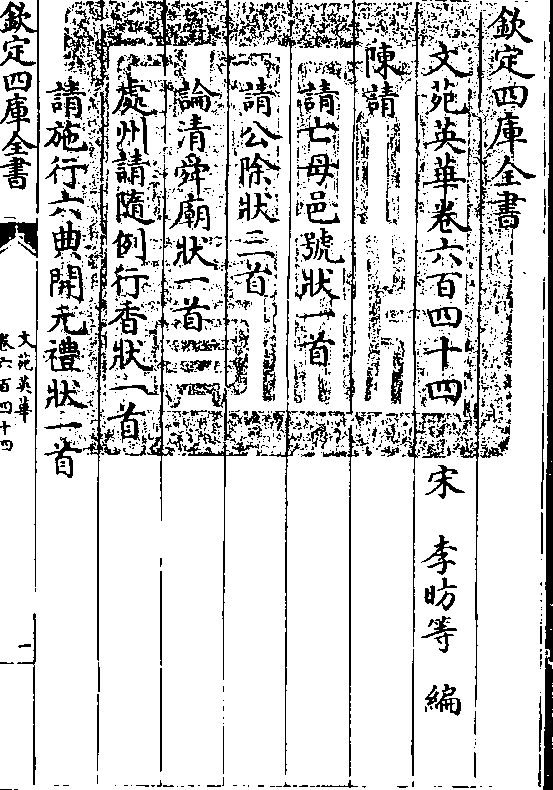 欽定四庫全書
文苑英華卷六百四十四
宋 李昉等 編
陳請
請亡母邑號狀一首
請公除狀三首
論清舜廟狀一首
處州請隨例行香狀一首
請施行六典開元禮狀一首
欽定四庫全書
文苑英華
卷六百四十四
一